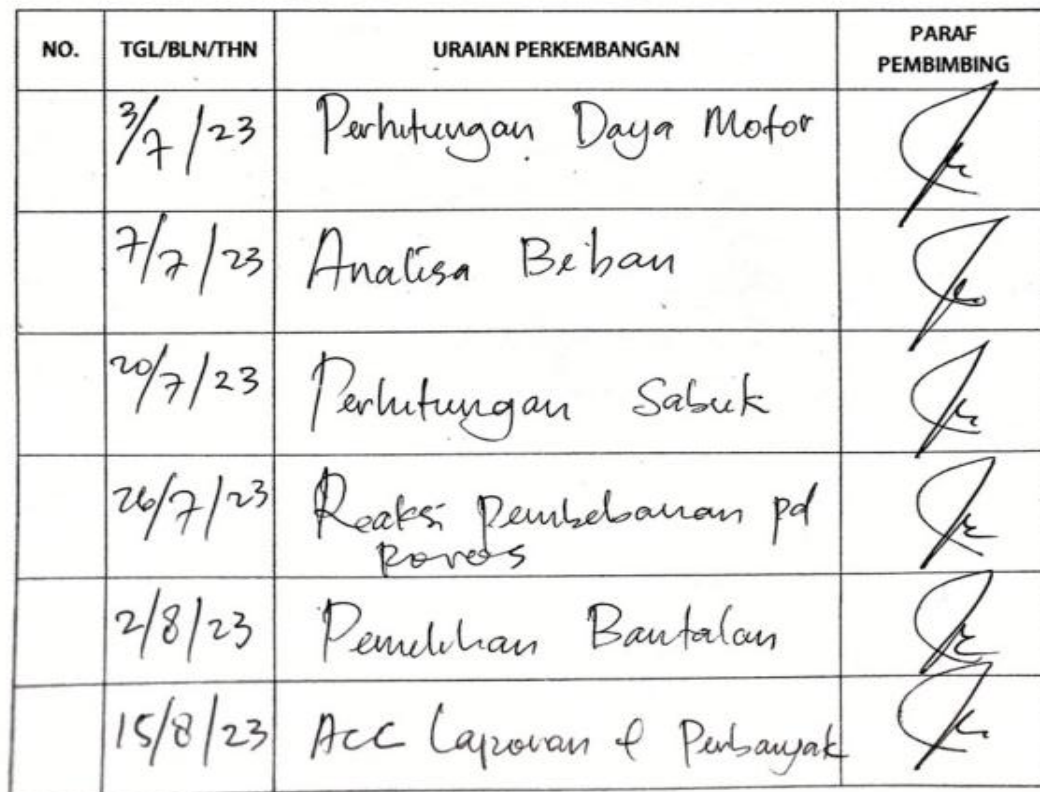 NO. TGL/BLN/THN URAIAN PERKEMBANGAN PARAF PEMBIMBING
3/7/23 Perhitungan Daya Motor
7/7/23 Analisa Beban
20/7/23 Perhitungan Sabuk
26/7/23 Reaksi pembebanan pd
poros
2/8/23 Pemilihan Bantalan
15/8/23 Acc Laporan & Perbanyak